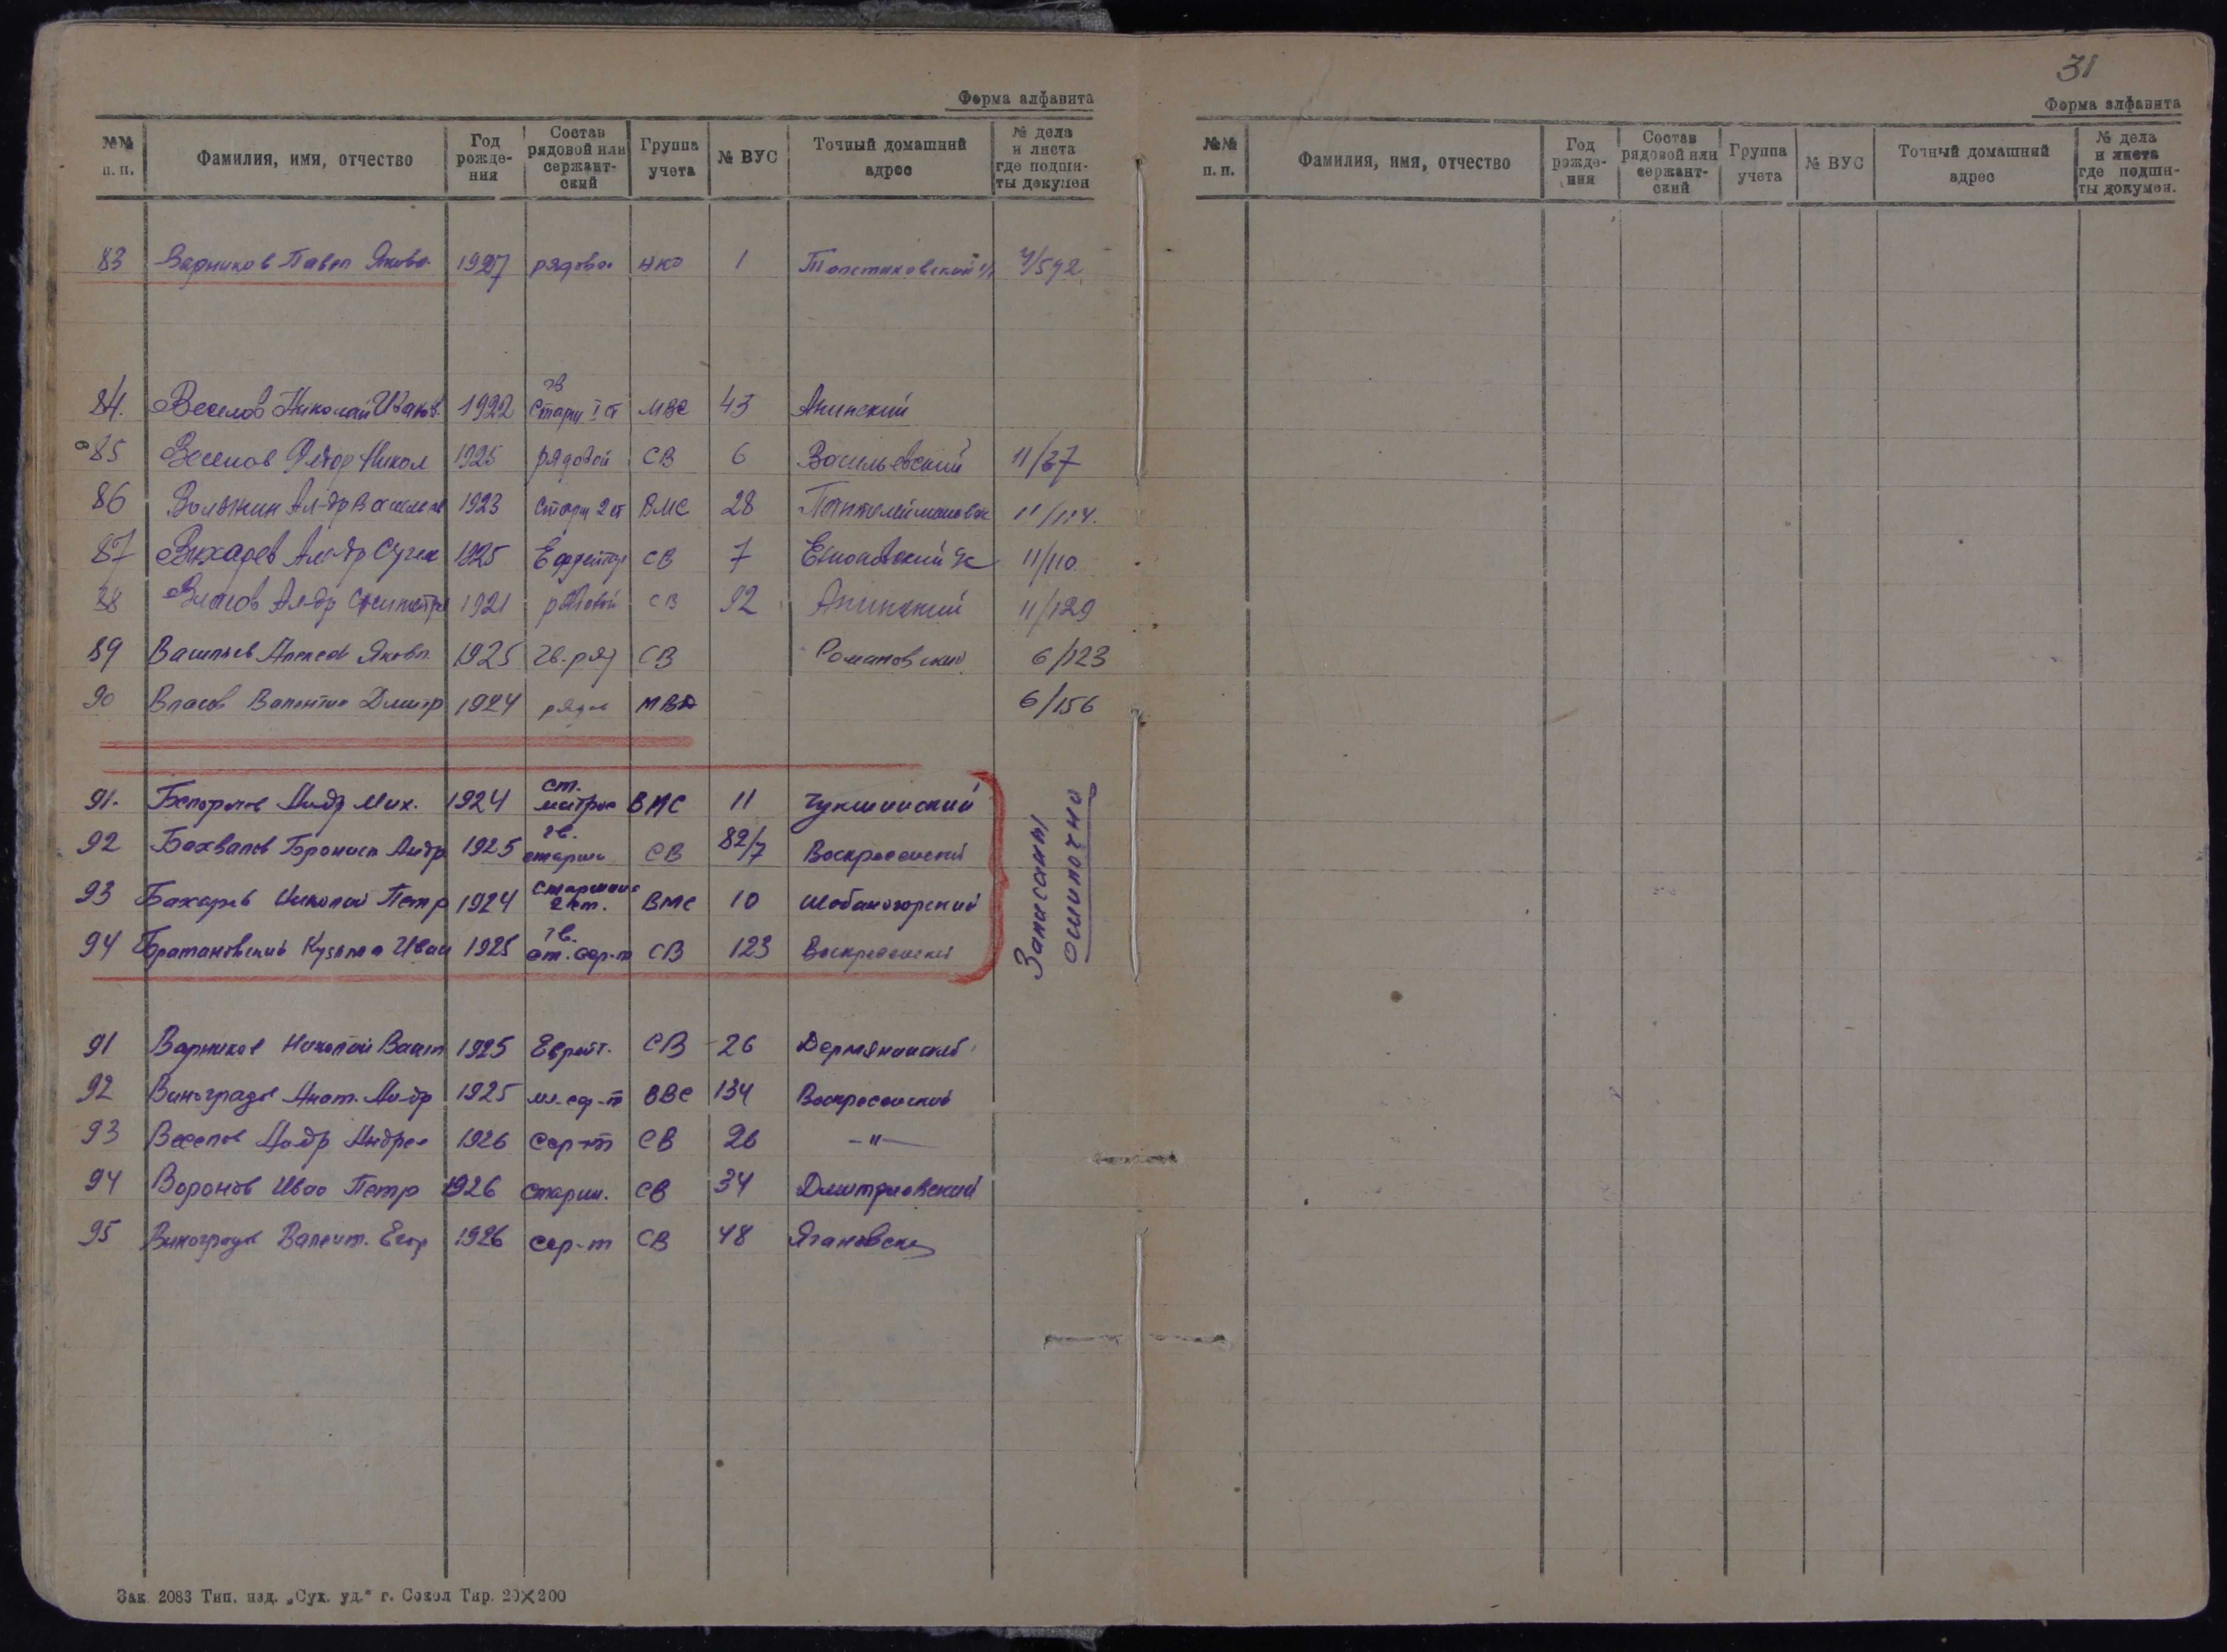 31
Форма алфавита
№№ п. п. Фамилия, имя, отчество Год рожде- ния Состав рядовой или сержант- ский Группа учета № ВУС Точный домашний адрес № дела и листа где подши- ты докумен
83 Варников Павел Яковл 1927 рядовой НКО 1 Толстиковский 4/592
гв
84. Веселов Николай Иванов. 1922 Старш I ст МВС 43 Анинский
85 Веселов Федор Никол 1925 рядовой СВ 6 Васильевский 11/27
86 Ал-др Василев 1923 Старш 2 ст ВМС 28 11/114.
87 Вихарев Ал-др Серг 1925 Ефрейтор СВ 7 11/110
88 Власов Ал-др 1921 рядовой СВ 92 Анинский 11/129
89 Васильев Алексей Яковл. 1925 гв. ряд СВ Романовский 6/123
90 Власов Валентин Дмитр 1924 рядов МВД 6/156
ст.
91. Ал-др Мих. 1924 матрос ВМС 11 Чукшинский
гв.
92 Бахвалов Бронисл Ал-др 1925 старши СВ 82/7 Воскресенский
старшина
93 Бахарев Николай Петр 1924 2 ст. ВМС 10 Шобаногорский
гв.
94 Братановский Кузьма Иван 1925 ст. сер-т СВ 123 Воскресенский
Записаны
ошибочно
91 Варников Николай Васил 1925 Ефрейт. СВ 26 Дермянинский
92 Виноградов Анат. Ал-др 1925 мл. сер-т ВВС 134 Воскресенский
93 Веселов Ал-др Андрее 1926 Сер-т СВ 26 -"-
94 Воронов Иван Петр 1926 Старш. СВ 34 Дмитриевский
95 Виноградов Валент. Егор 1926 сер-т СВ 48 Ягановски
Зак. 2083 Тип. изд. „Сух. уд.“ г. Сокол Тир. 20×200
Форма алфавита
№№ п. п. Фамилия, имя, отчество Год рожде- ния Состав рядовой или сержант- ский Группа учета № ВУС Точный домашний адрес № дела и листа где подши- ты докумен.